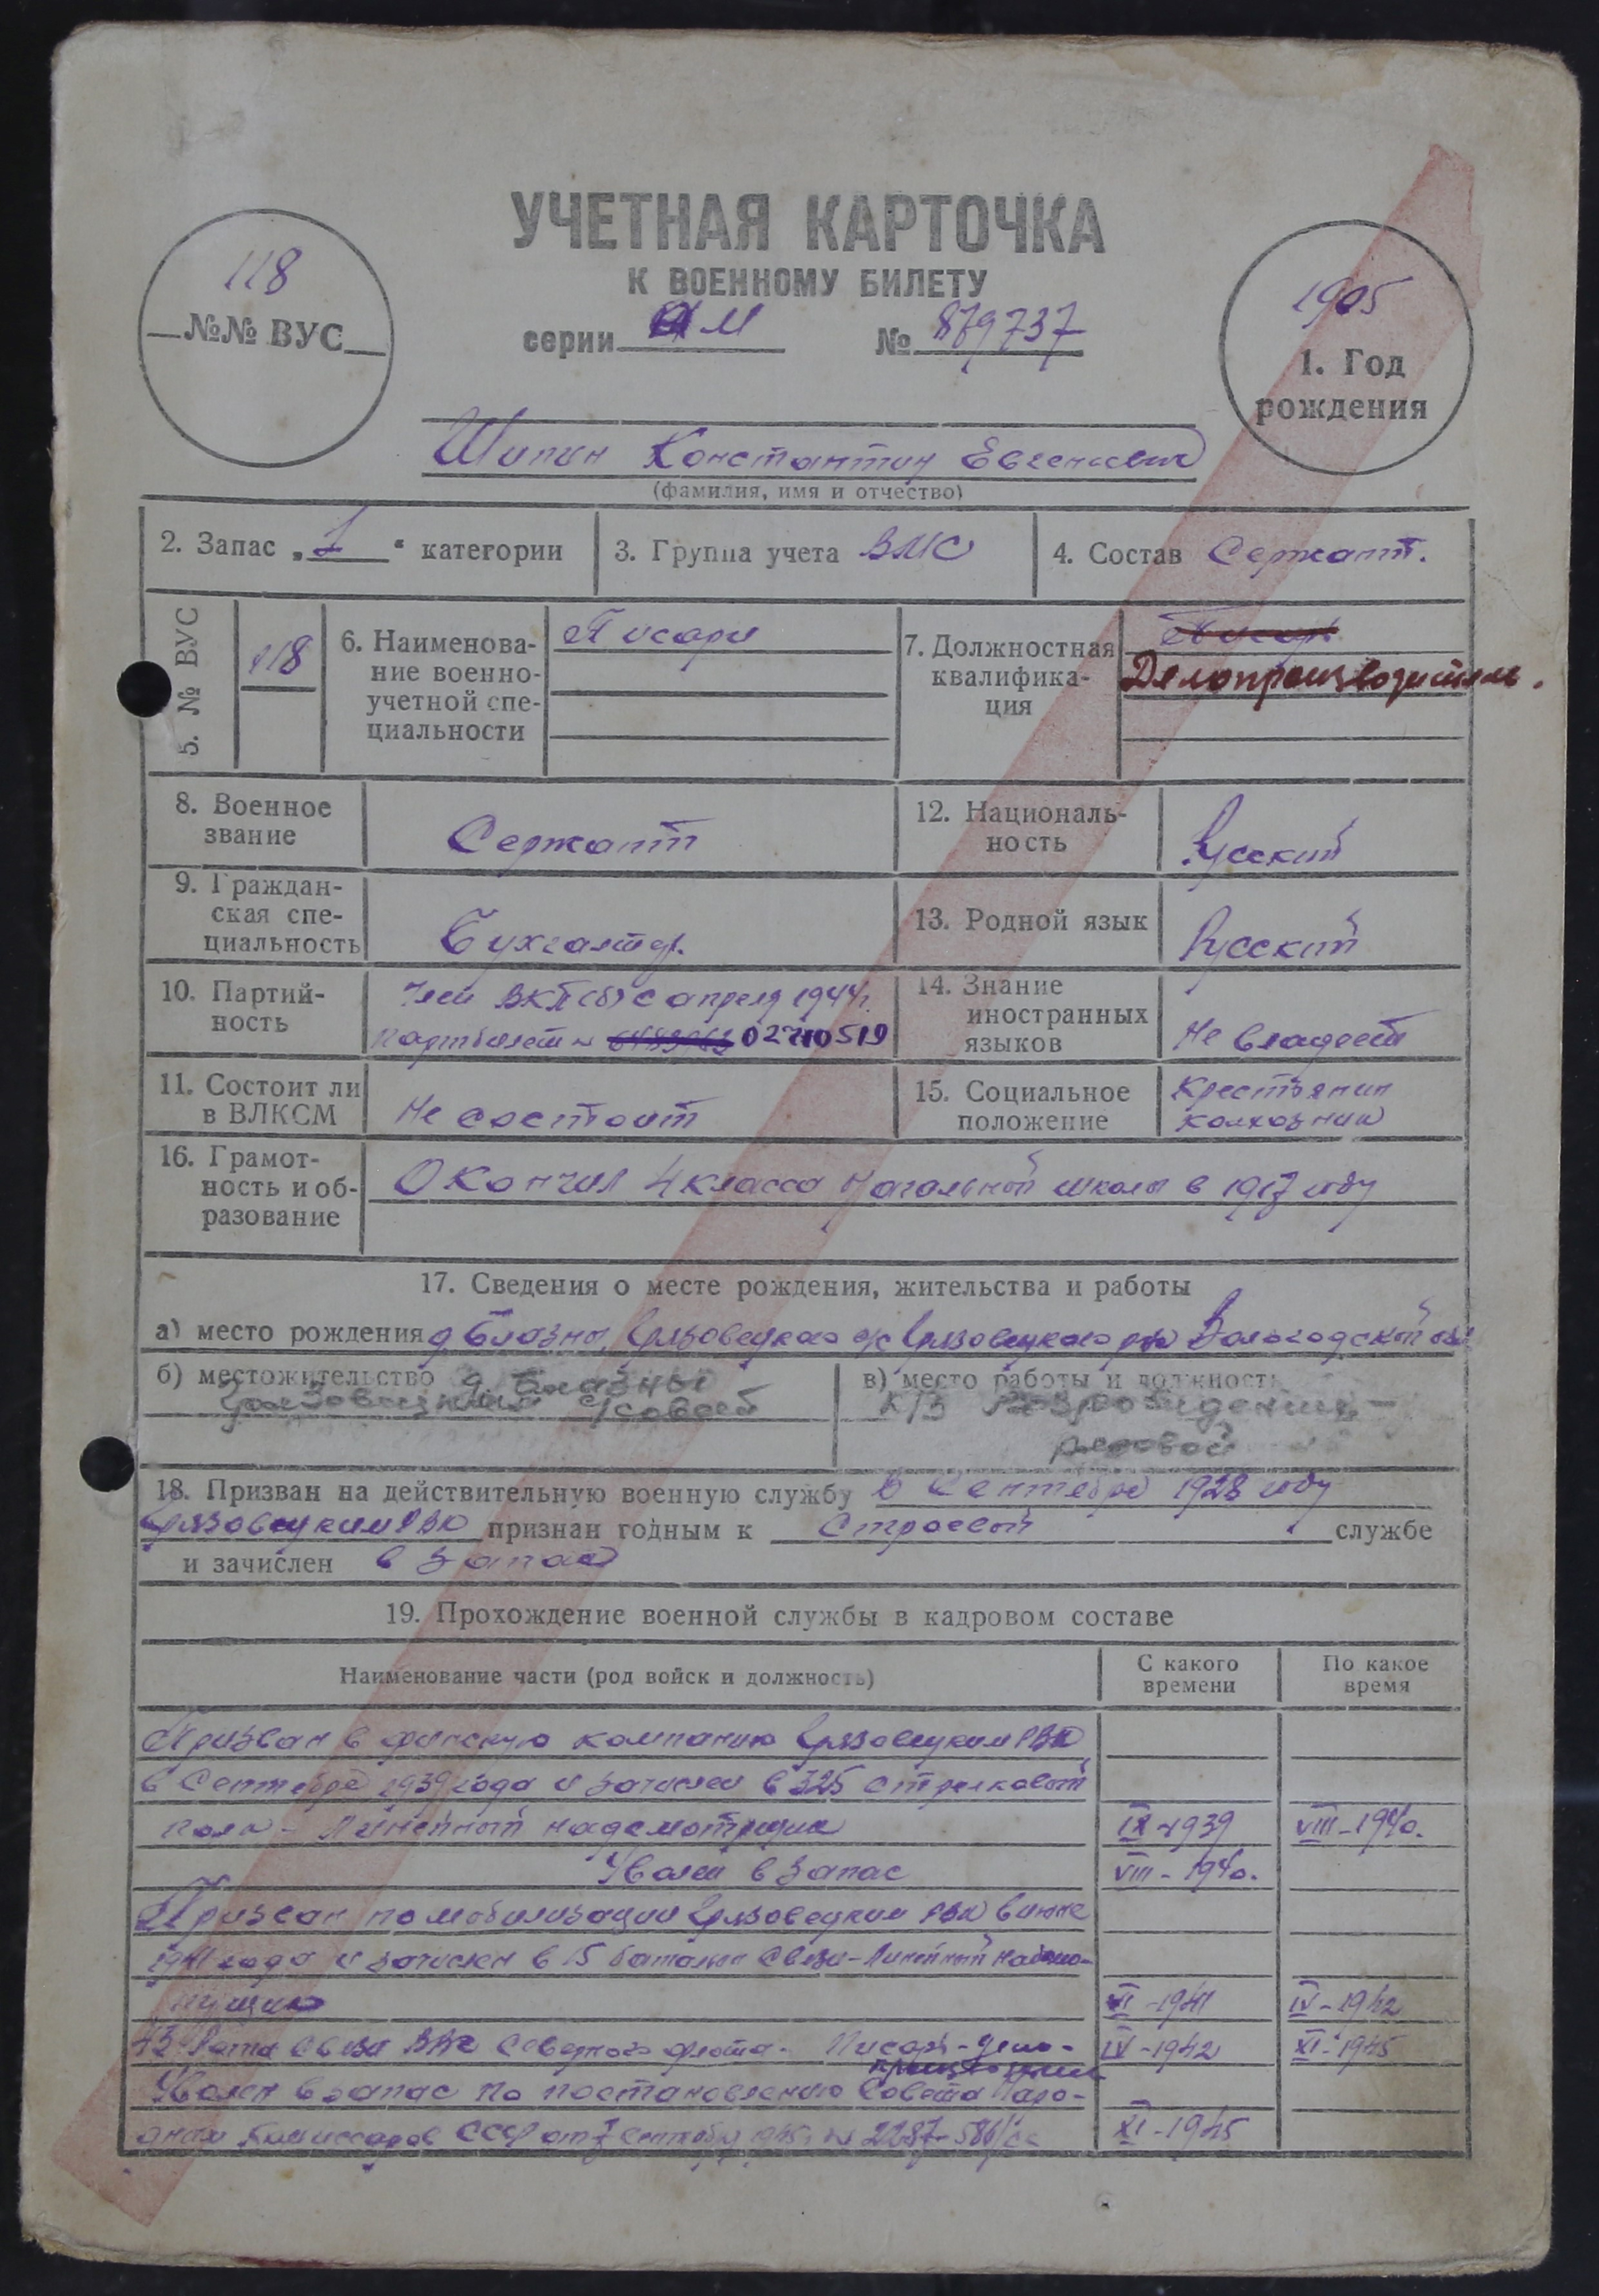 УЧЕТНАЯ КАРТОЧКА
К ВОЕННОМУ БИЛЕТУ
серии М № 879737
118
№№ ВУС
1905
1. Год
рождения
Шипин Константин Евгеньевич
(фамилия, имя и отчество)
2. Запас „1“ категории
3. Группа учета ВМС
4. Состав Сержант.
5. № ВУС
118
6. Наименова-
ние военно-
учетной спе-
циальности
Писаря
7. Должностная
квалифика-
ция
Писарь
Делопроизводитель.
8. Военное
звание
Сержант
9. Граждан-
ская спе-
циальность
Бухгалтер.
10. Партий-
ность
Член ВКП(б) с апреля 1944 г.
партбилет № 02710519
11. Состоит ли
в ВЛКСМ
Не состоит
12. Националь-
ность
Русский
13. Родной язык
Русский
14. Знание
иностранных
языков
Не владеет
15. Социальное
положение
Крестьянин
колхозник
16. Грамот-
ность и об-
разование
Окончил 4 класса начальной школы в 1917 году
17. Сведения о месте рождения, жительства и работы
а) место рождения д Блазны, Грязовецкого с/с Грязовецкого р-на Вологодской обл
б) местожительство д. Блазны
Грязовецкий с/совет
в) место работы и должность
к/з Возрождение -
рядовой
18. Призван на действительную военную службу в Сентябре 1928 году
Грязовецким РВК признан годным к строевой службе
и зачислен в запас
19. Прохождение военной службы в кадровом составе
Наименование части (род войск и должность)
С какого
времени
По какое
время
Призван в финскую компанию Грязовецким РВК
в Сентябре 1939 года и зачислен в 325 стрелковый
полк - Линейный надсмотрщик IX-1939 VIII-1940.
Уволен в запас VIII-1940.
Призван по мобилизации Грязовецким РВК в июне
1941 года и зачислен в 15 батальон связи - Линейный надсмо-
трщик VI-1941 IV-1942
43 Рота связи ВВС Северного флота - Писарь - дело- IV-1942 XI-1945
производитель
Уволен в запас по постановлению Совета Наро-
дных Комиссаров СССР от Сентября 1945 г № 2287-586/сс XI-1945